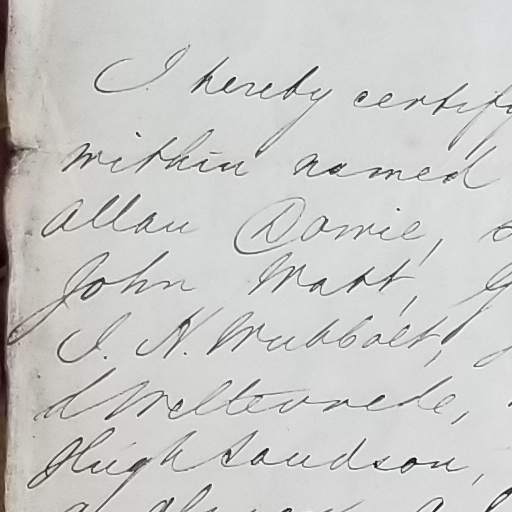 I hereby certify
within named
Allan Damie,
John Watt,
I. H. Wubbolt,
d Weltevrede,
Hugh Saudson,